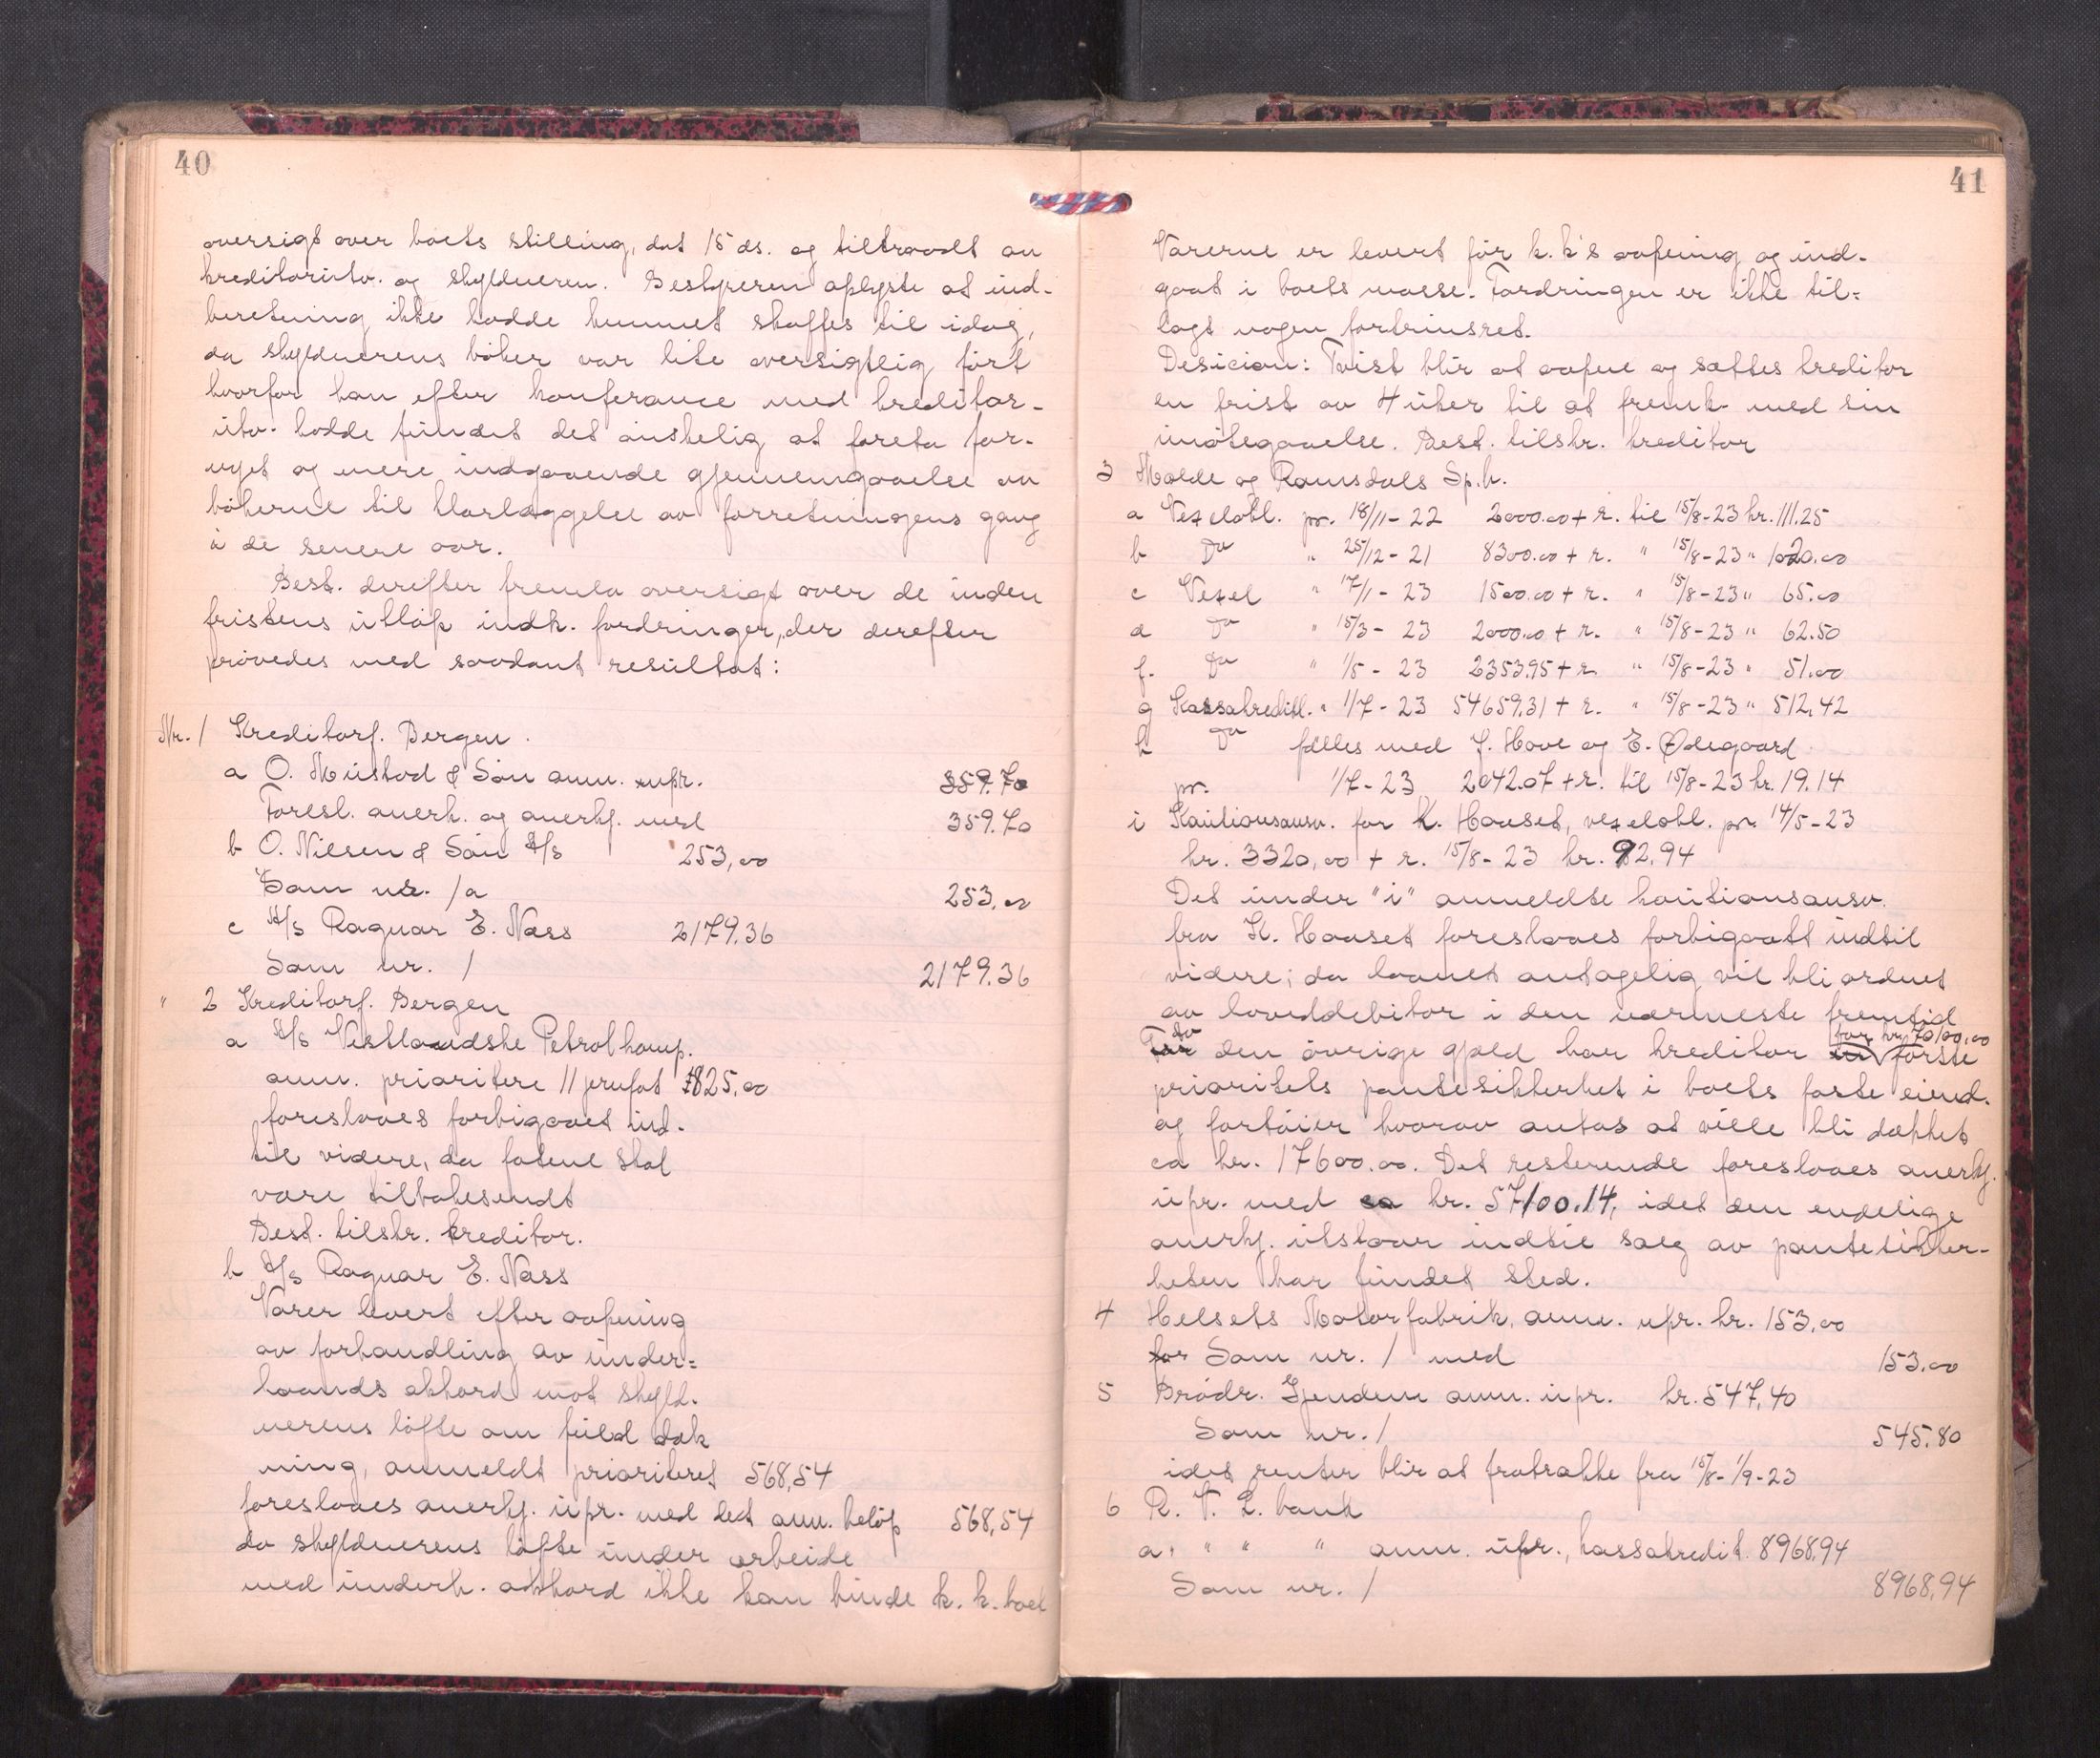 40
oversigt over boets stilling, dat 15 ds. og tiltraadt av
kreditorutv. og skyldneren. Bestyreren oplyste at ind-
beretning ikke hadde kunnet skaffes til idag,
da skyldnerens bøker var lite oversigtlig ført
hvorfor han efter konferance med kreditor-
utv. hadde fundet det ønskelig at foreta for-
nyet og mere indgaaende gjennemgaaelse av
bøkerne til klarlæggelse av forretningens gang
i de senere aar.
Best. derefter fremla oversigt over de inden
fristens utløp indk. fordringer, der derefter
prøvedes med saadant resultat:
Nr. 1 Kreditorf. Bergen.
a O. Mustad & Søn anm. upr. 359.70
Foresl. anerk. og anerkj. med 359.70
b O. Nilsen & Søn A/s 253,00
Som nr. 1a 253.00
c A/s Ragnar E. Næss 2179.36
Som nr. 1 2179.36
" 2 Kreditorf. Bergen
a A/s Vestlandske Petrolkomp.
anm. prioritere 11 jernfat 825.00
foreslaaes forbigaaet ind-
til videre, da fatene skal
være tilbakesendt
Best. tilskr. kreditor.
b A/s Ragnar E. Næss
Varer levert efter aapning
av forhandling av under=
haands akkord mot skyld-
nerens løfte om fuld dæk
ning, anmeldt prioriteret 568,54
foreslaaes anerkj. upr. med det anm. beløp 568,54
da skyldnerens løfte under arbeide
med underh. akkord ikke kan binde k. k. boet
41
Varerne er levert før k.k's aapning og ind-
gaat i boets masse. Fordringen er ikke til=
lagt nogen fortrinsret.
Desicion: Tvist blir at aapne og sættes kreditor
en frist av 4 uker til at fremk. med sin
imøtegaaelse. Best. tilskr. kreditor
3 Molde og Romsdals Sp.k.
a Vexelobl. pr. 18/11-22 2000.00 + r. til 15/8-23 kr. 111.25
b Do " 25/12-21 8300.00 + r. " 15/8-23 " 1020.00
c Vexel " 17/1-23 1500.00 + r. " 15/8-23 " 65.00
d Do " 15/3-23 2000.00 + r. " 15/8-23 " 62.50
f. Do " 1/5-23 2353.95 + r. " 15/8-23 " 51.00
g Kassakreditl. " 1/7-23 54659.31 + r. " 15/8-23 " 512.42
h Do fælles med J. Hove og E. Ødegaard
pr. 1/7-23 2042.07 + r. til 15/8-23 kr. 19.14
i Kautionsansv. for K. Hauset, vexelobl. pr. 14/5-23
kr. 3320,00 + r. 15/8-23 kr. 92.94
Det under "i" anmeldte kautionsansv.
fra K. Hauset foreslaaes forbigaatt indtil
videre; da laanet antagelig vil bli ordnet
av hoveddebitor i den nærmeste fremtid
For den øvrige gjæld har kreditor for kr. 70100,00 første
prioritets pantesikkerhet i boets faste eiend.
og fartøier hvorav antas at ville bli dækket
ca kr. 17600.00. Det resterende foreslaaes anerkj.
upr. med kr. 57100.14, idet den endelige
anerkj. utstaar indtil salg av pantesikker-
heten har fundet sted.
4 Helsets Motorfabrik, anm. upr. kr. 153,00
Som nr. 1 med 153.00
5 Brødr. Gjendem anm. upr. kr. 547,40
Som nr. 1 545.80
idet renter blir at fratrække fra 15/8-1/9-23
6 R. F. L. bank
a. " " " anm. upr., kassakredit 8968,94
Som nr. 1 8968,94